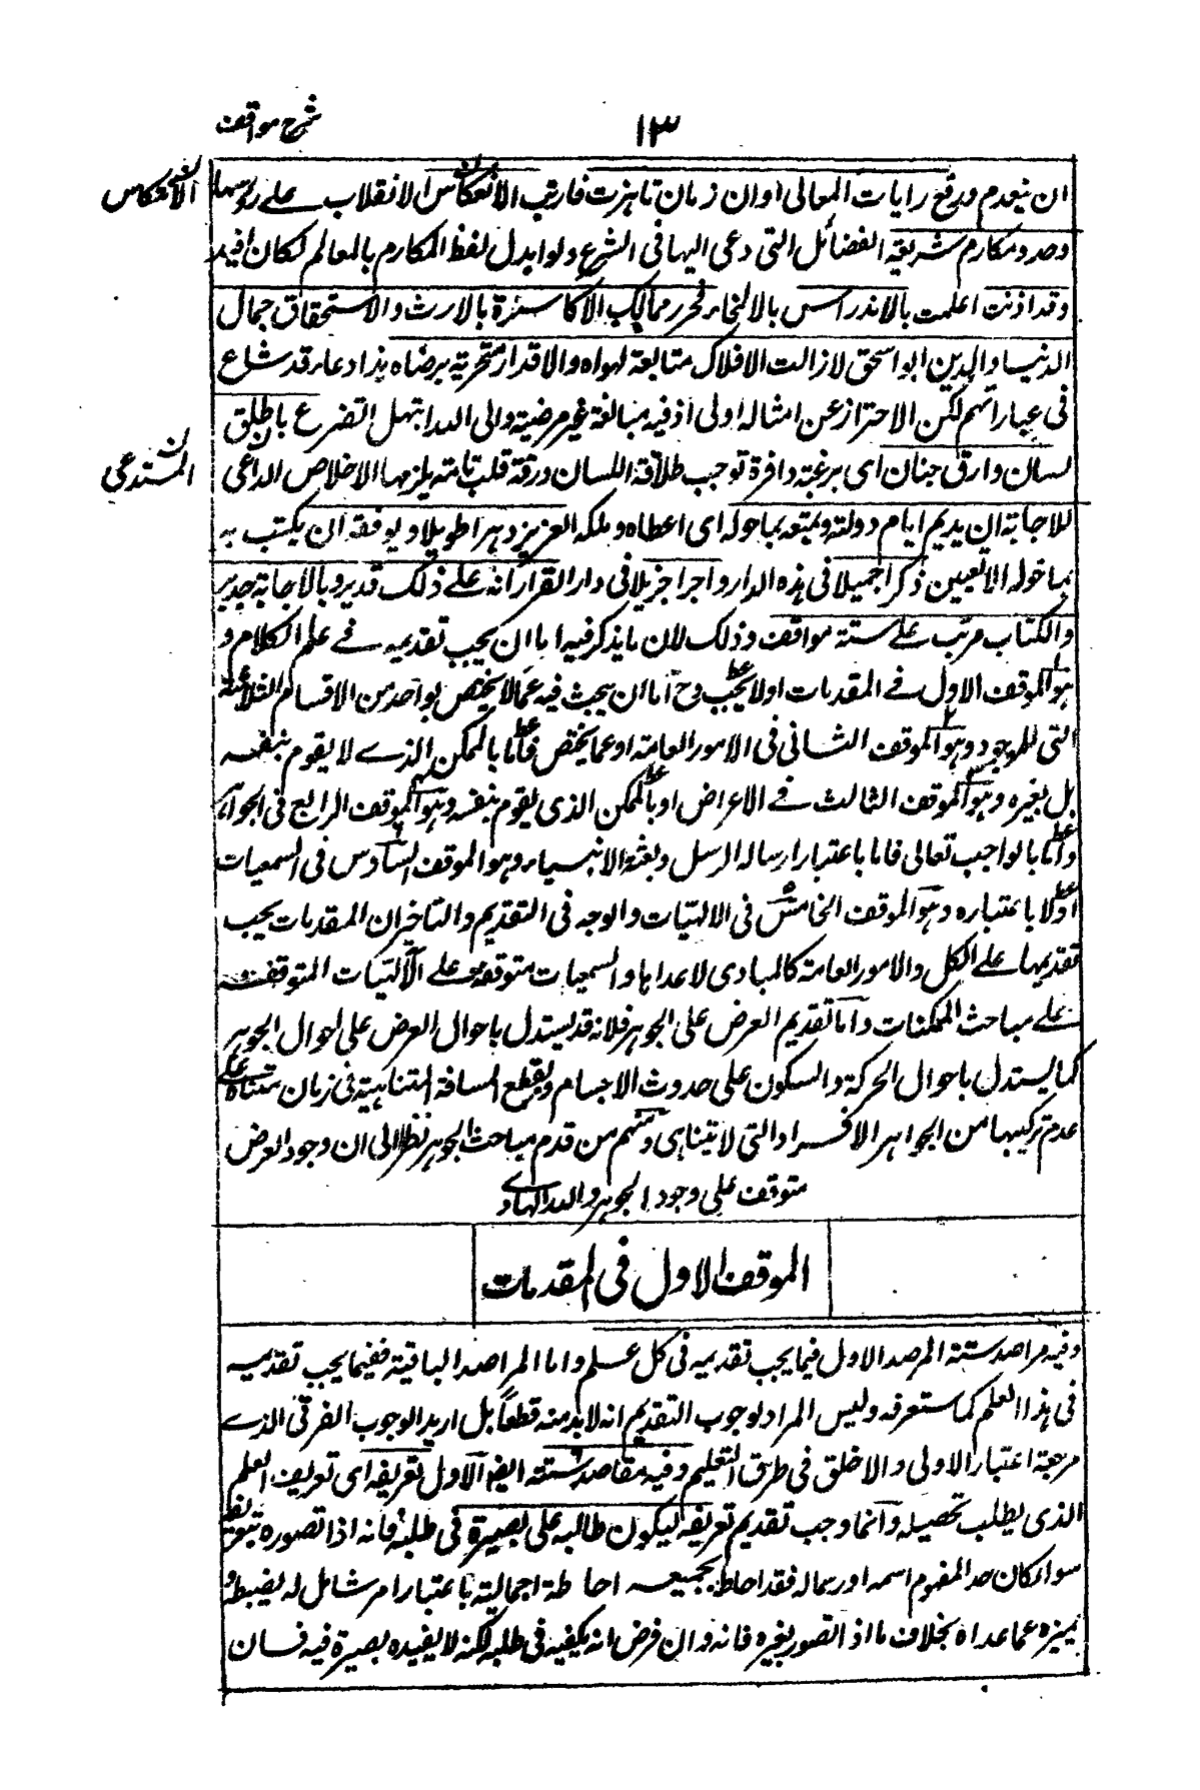 ١٣
شرح مواقف
ان ينهدم ورفع رايات المعالى اوان زمان ناهزت قاربت الانعكاس الانقلاب على رؤسها
الانتكاس
وجدد مكارم شريعة الفضائل التى دعى اليها فى الشرع ولو ابدل لفظ المكارم بالمعالم لكان افيد
وقد اذنت اعلمت بالاندراس بالانمحاء محرز ممالك الاكاسرة بالارث والاستحقاق جمال
الدنيا والدين ابو اسحق لا زالت الافلاك متابعة لهواه والاقدار متحرية برضاه هذا دعاء قد شاع
فى عباراتهم لكن الاحتراز عن امثاله اولى اذ فيه مبالغة غير مرضية والى الله ابتهل اتضرع باطلق
لسان وارق جنان اى برغبة وافرة توجب طلاقة اللسان ورقة قلب تامة يلزمها الاخلاص الداعى
المستدعى
للاجابة ان يديم ايام دولته ويمتعه بما خوله اى اعطاه وملكه العزيز دهرا طويلا ويوفقه ان يكتسب به
بما خوله الابقيين ذكرا جميلا فى هذه الدار واجرا جزيلا فى دار القرار انه على ذلك قدير وبالاجابة جدير
والكتاب مرتب على ستة مواقف وذلك لان ما يذكر فيه اما ان يجب تقديمه فى علم الكلام و
هو الموقف الاول فى المقدمات اولا يجب وح اما ان يبحث فيه عما لا يختص بواحد من الاقسام الثلاثة
التى للموجود وهو الموقف الثانى فى الامور العامة او عما يختص فاما بالممكن الذى لا يقوم بنفسه
بل بغيره وهو الموقف الثالث فى الاعراض او بالممكن الذى يقوم بنفسه وهو الموقف الرابع فى الجواهر
واما بالواجب تعالى فاما باعتبار ارساله الرسل وبعثه الانبياء وهو الموقف السادس فى السمعيات
اولا باعتباره وهو الموقف الخامس فى الالهيات والوجه فى التقديم والتاخير ان المقدمات يجب
تقديمها على الكل والامور العامة كالمبادى لاعداها والسمعيات متوقفة على الالهيات المتوقفة
على مباحث الممكنات واما تقديم العرض على الجوهر فلانه قد يستدل باحوال العرض على احوال الجوهر
كما يستدل باحوال الحركة والسكون على حدوث الاجسام وبقطع المسافة المتناهية فى زمان متناه على
عدم تركيبها من الجواهر الافراد التى لا تتناهى ومنهم من قدم مباحث الجوهر نظرا الى ان وجود العرض
متوقف على وجود الجوهر والله الهادى
الموقف الاول فى المقدمات
وفيه مراصد ستة المرصد الاول فيما يجب تقديمه فى كل علم واما المراصد الباقية ففيما يجب تقديمه
فى هذا العلم كما ستعرفه وليس المراد بوجوب التقديم انه لا بد منه قطعا بل اريد الوجوب العرفى الذى
مرجعه اعتبار الاولى والاخلق فى طريق التعليم وفيه مقاصد ستة ايضا الاول تعريفه اى تعريف العلم
الذى يطلب تحصيله وانما وجب تقديم تعريفه ليكون طالبه على بصيرة فى طلبه فانه اذا تصوره بتعريفه
سواء كان حد المفهوم اسمه او رسما له فقد احاط بجميعه احاطة اجمالية باعتبار امر شامل له يضبطه و
يميزه عما عداه بخلاف ما اذا تصور بغيره فانه وان فرض انه يكفيه فى طلبه لكنه لا يفيده بصيرة فيه فان